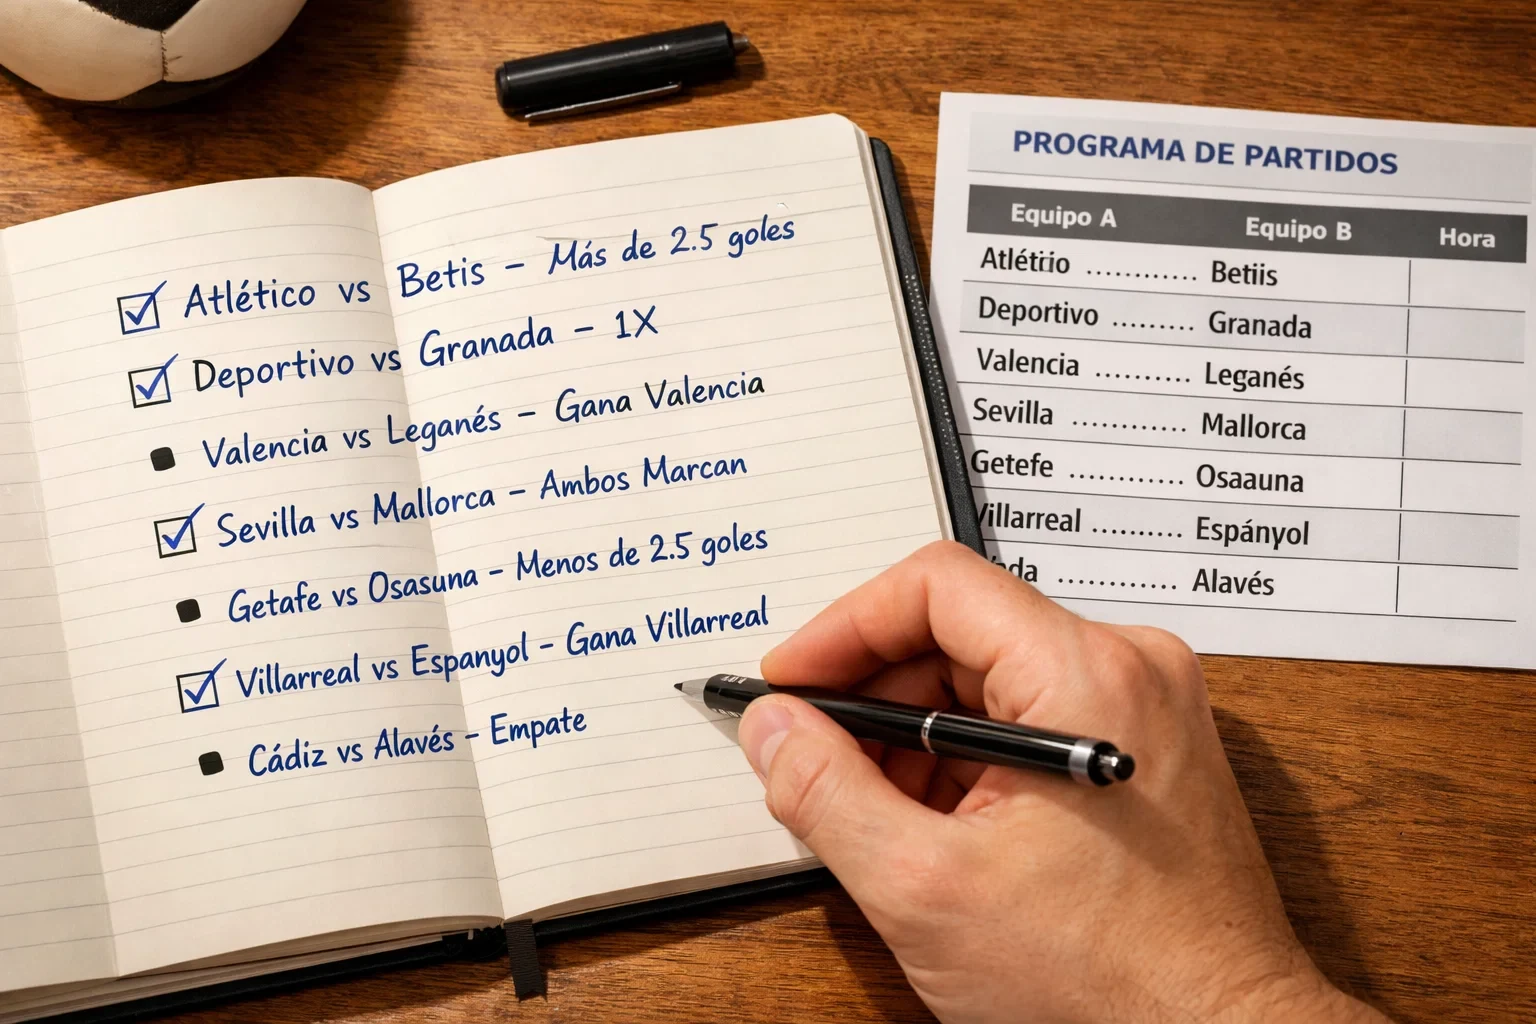 Atlético vs Betis – Más de 2.5 goles
Deportivo vs Granada – 1X
Valencia vs Leganés – Gana Valencia
Sevilla vs Mallorca – Ambos Marcan
Getafe vs Osasuna – Menos de 2.5 goles
Villarreal vs Espanyol – Gana Villarreal
Cádiz vs Alavés – Empate
PROGRAMA DE PARTIDOS
Equipo A Equipo B Hora
Atlético ........... Betiis
Deportivo ......... Granada
Valencia .......... Leganés
Sevilla ............ Mallorca
Getefe ............ Osaauna
Villarreal ......... Espányol
............ Alavés